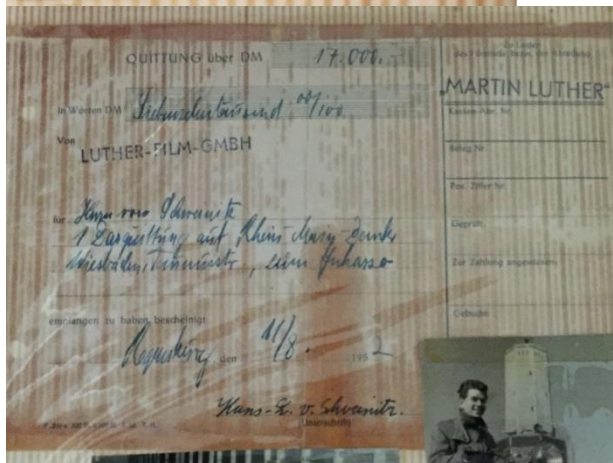 QUITTUNG über DM 17.000.
in Worten DM Siebzehntausend 00/100
Von LUTHER-FILM-GMBH
für Herrn von Schweinitz
1 auf Rhein Main
Wiesbaden, Taunusstr, zum Inkasso
empfangen zu haben, bescheinigt
Regensburg, den 11/8. 1952
Hans-H. v. Schweinitz.
Unterschrift
Zu Lasten
"MARTIN LUTHER"
Beleg Nr.
Pos. Ziffer Nr.
Geprüft
Zur Zahlung angewiesen:
Gebucht